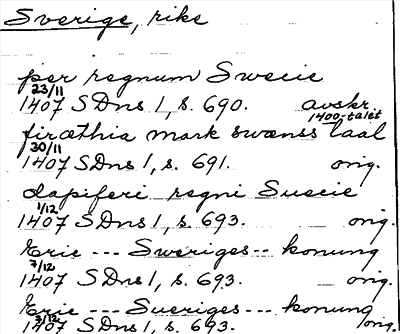 Sverige, rike
per regnum Swecie
23/11
1407 SDns 1, s. 690. avskr.
1400-talet
firæthia mark swænss taal
30/11
1407 SDns 1, s. 691. orig.
dapiferi regni Suecie
1/12
1407 SDns 1, s. 693. orig.
Eric --- Sweriges -- konung
7/12
1407 SDns 1, s. 693. orig.
Eric --- Sueriges -- konung
1407 SDns 1, s. 693. orig.